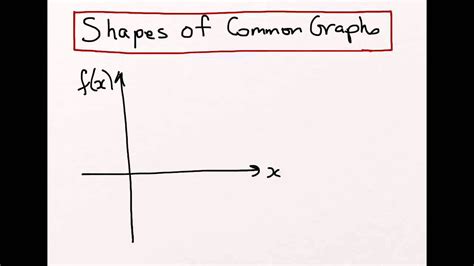 Shapes of Common Graphs
f(x)
x